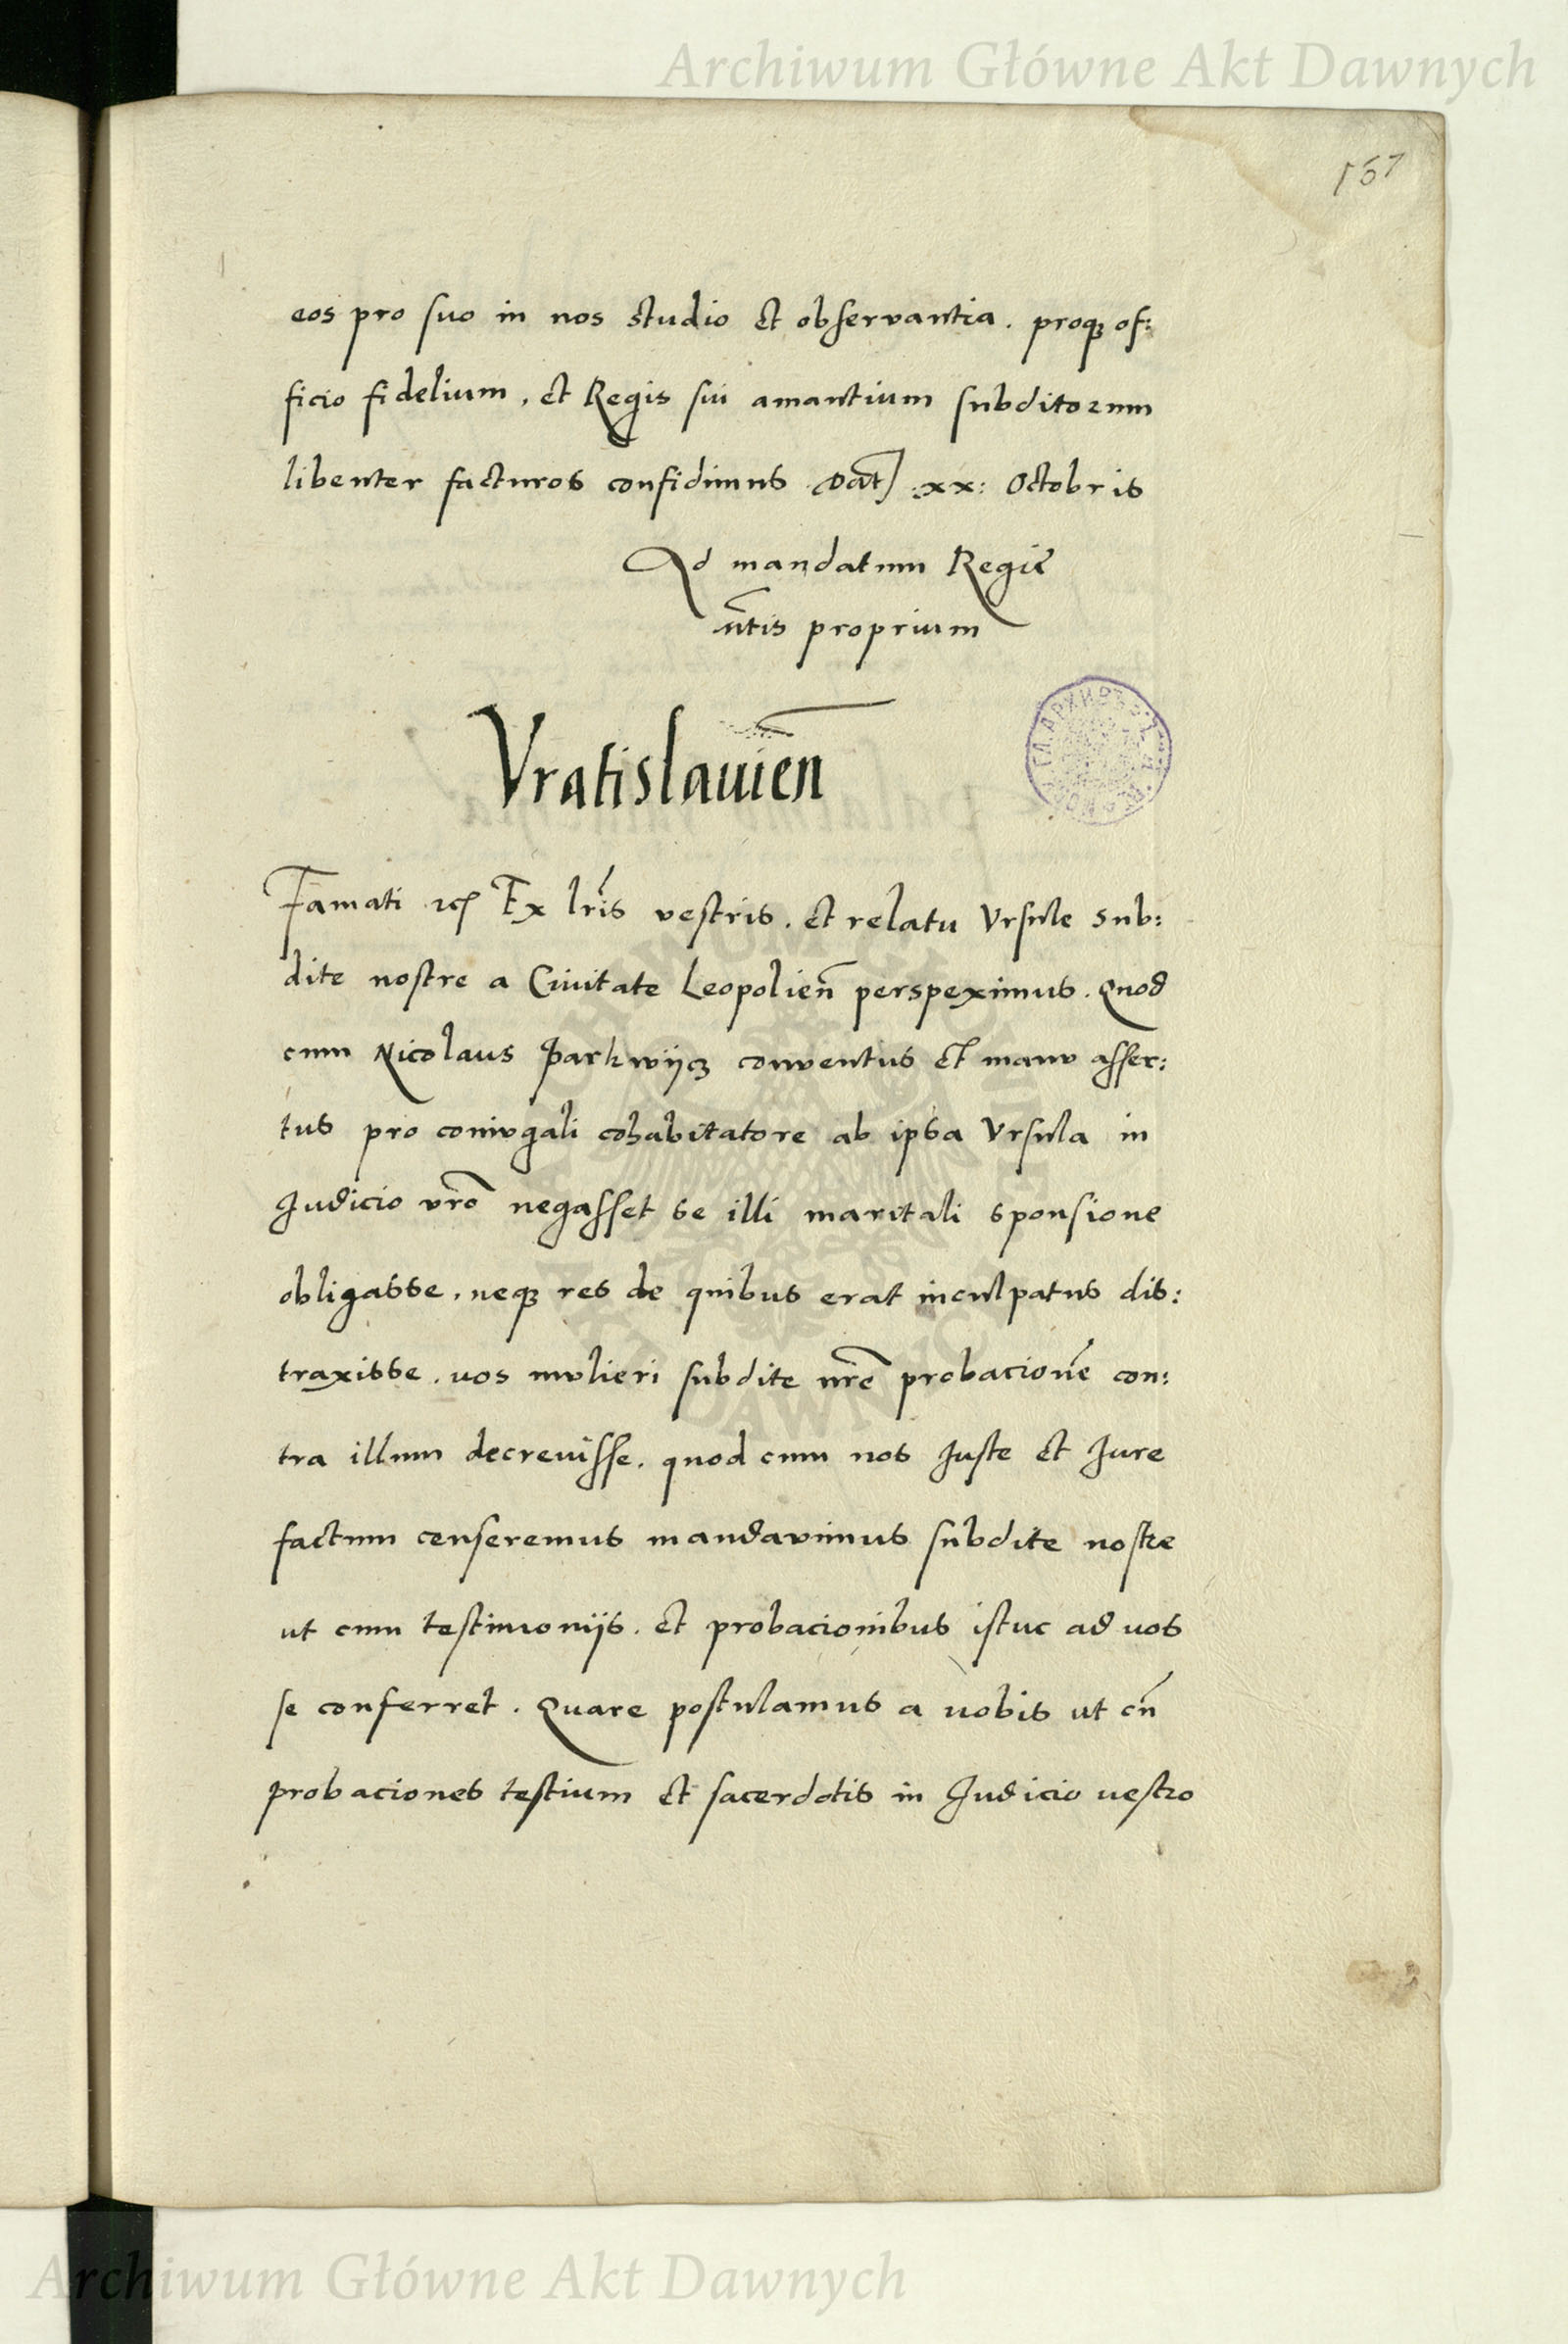 Archiwum Główne Akt Dawnych
167
eos pro suo in nos studio et observantia. proq3 of:
ficio fidelium, et Regis sui amantium subditorum
libenter facturos confidimus Dat .xx: Octobris
Ad mandatum Regie
mtis proprium
Vratislauien̄
Famati Ex lris vestris. et relatu Vrsule sub:
dite nostre a Civitate Leopolien̄ perspeximus. Quod
cum Nicolaus Parkwijcz conventus et manu asser:
tus pro coniugali cohabitatore ab ipsa Vrsula in
Judicio vro negasset se illi maritali sponsione
obligasse, neq3 res de quibus erat inculpatus dis:
traxisse. uos mulieri subdite nre probacione con:
tra illum decreuisse. quod cum nos Juste et Jure
factum censeremus mandavimus subdite nostre
ut cum testimonijs. et probacionibus istuc ad uos
se conferret. Quare postulamus a uobis ut cū
probaciones testium et sacerdotis in Judicio uestro
Archiwum Główne Akt Dawnych